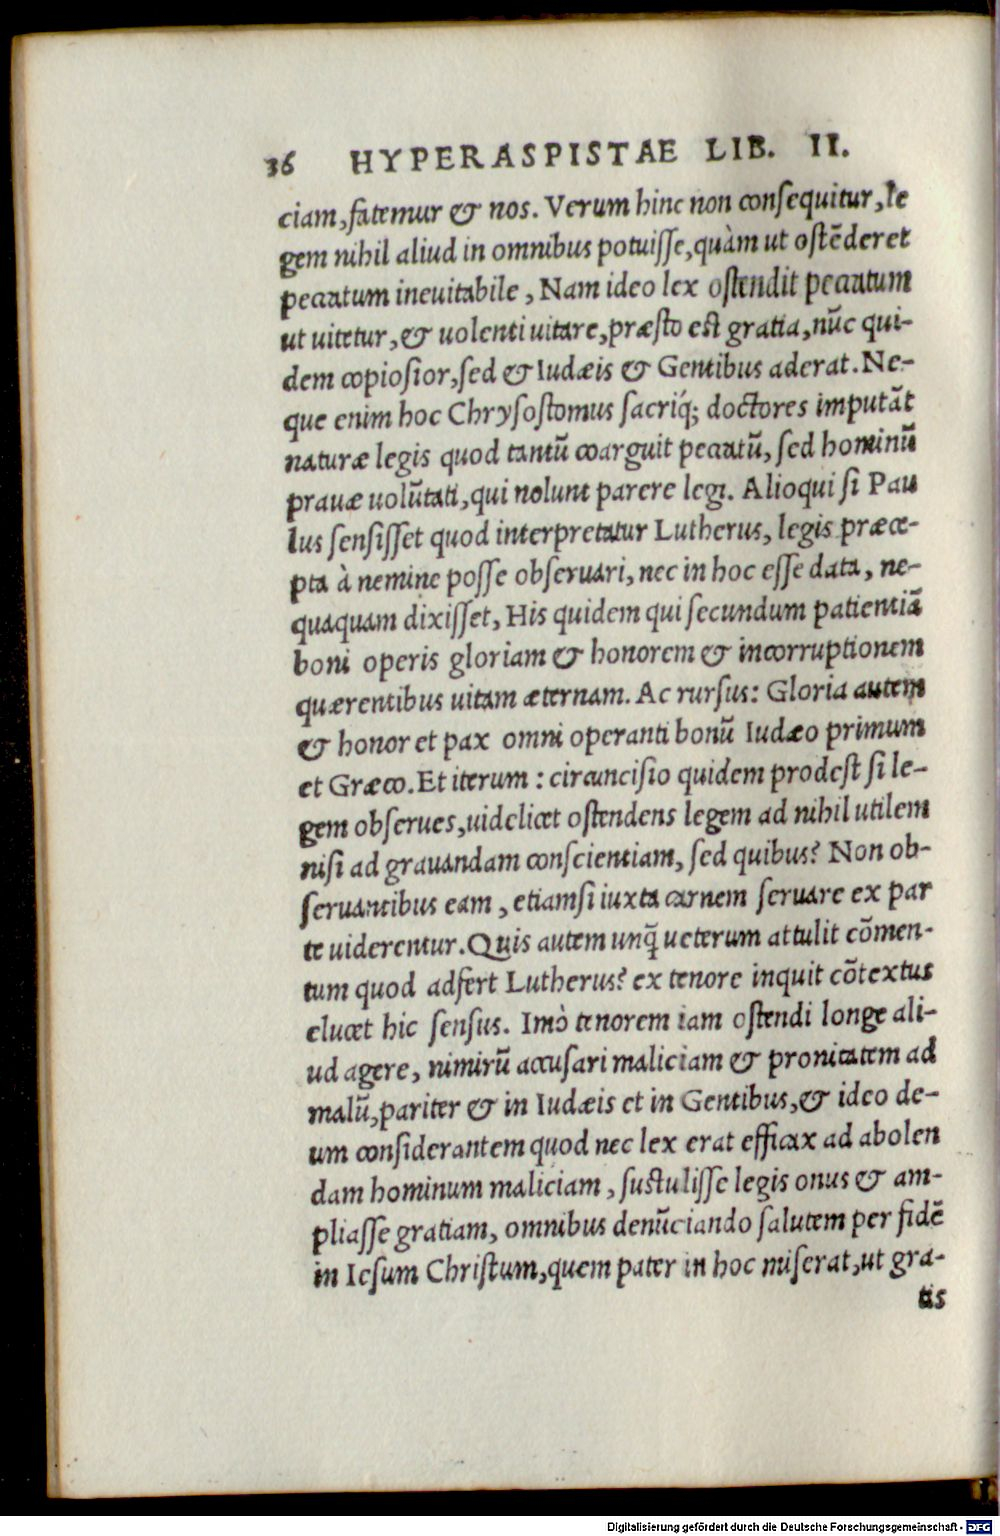 36 HYPERASPISTAE LIB. II.
ciam, fatemur & nos. Verum hinc non consequitur, le
gem nihil aliud in omnibus potuisse, quàm ut ostẽderet
peccatum ineuitabile, Nam ideo lex ostendit peccatum
ut uitetur, & uolenti uitare, præsto est gratia, nũc qui-
dem copiosior, sed & Iudæis & Gentibus aderat. Ne-
que enim hoc Chrysostomus sacriq́; doctores imputãt
naturæ legis quod tantũ coarguit peccatũ, sed hominũ
prauæ uolũtati, qui nolunt parere legi. Alioqui si Pau
lus sensisset quod interpretatur Lutherus, legis præce-
pta à nemine posse obseruari, nec in hoc esse data, ne-
quaquam dixisset, His quidem qui secundum patientiã
boni operis gloriam & honorem & incorruptionem
quærentibus uitam æternam. Ac rursus: Gloria autem
& honor et pax omni operanti bonũ Iudæo primum
et Græco. Et iterum: circuncisio quidem prodest si le-
gem obserues, uidelicet ostendens legem ad nihil utilem
nisi ad grauandam conscientiam, sed quibus? Non ob-
seruantibus eam, etiamsi iuxta carnem seruare ex par
te uiderentur. Quis autem unq̃ ueterum attulit cõmen-
tum quod adfert Lutherus? ex tenore inquit cõtextus
elucet hic sensus. Imò tenorem iam ostendi longe ali-
ud agere, nimirũ accusari maliciam & pronitatem ad
malũ, pariter & in Iudæis et in Gentibus, & ideo de-
um considerantem quod nec lex erat efficax ad abolen
dam hominum maliciam, sustulisse legis onus & am-
pliasse gratiam, omnibus denũciando salutem per fidẽ
in Iesum Christum, quem pater in hoc miserat, ut gra-
tis
Digitalisierung gefördert durch die Deutsche Forschungsgemeinschaft - DFG